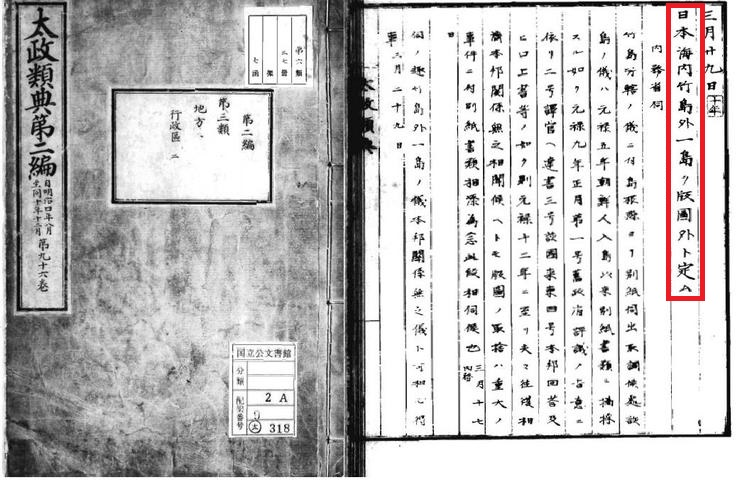 太政類典第二編 自明治四年八月 至同十年十二月 第九十六卷
第六類
第二編
第三類
地方、
行政區 二
国立公文書館
分類
配架番号
2 A
9
太 318
三月廿九日 十年
日本海内竹島外一島ヲ版圖外ト定ム
内務省伺
竹島所轄ノ儀ニ付島根縣ヨリ別紙伺出取調候処該
島ノ儀ハ元禄五年朝鮮人入島以来別紙書類ニ摘採
スル如ク元禄九年正月第一号舊政府評議ノ旨意ニ
依リ二号譯官ヘ達書三号該國来柬四号本邦回答及
ヒ口上書等ノ如ク則元禄十二年ニ至リ夫々往復相
濟本邦関係無之相聞候ヘトモ版圖ノ取捨ハ重大ノ
事件ニ付別紙書類相添為念此段相伺候也 三月十七 内務
日
伺ノ趣竹島外一島ノ儀本邦関係無之儀ト可相心得
事 三月二十九日
太政類典